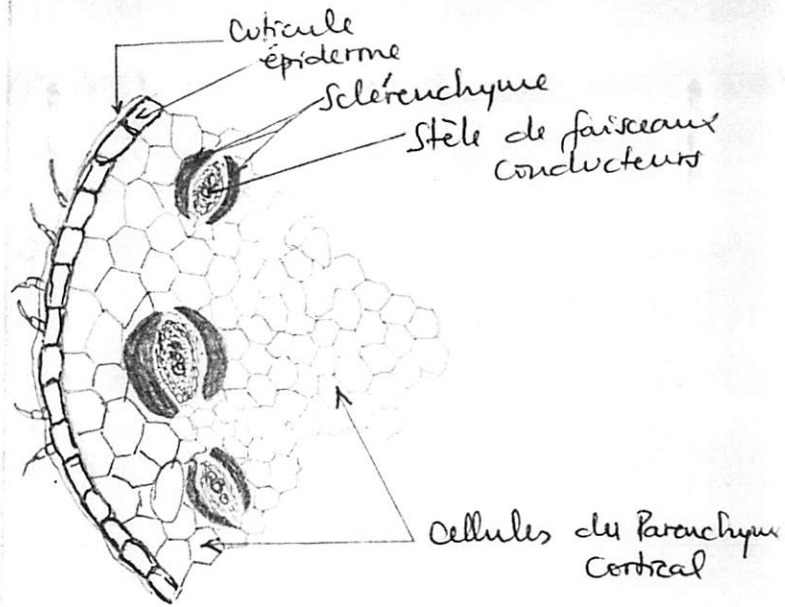 Cuticule
épiderme
Sclérenchyme
Stèle de faisceaux
conducteurs
Cellules du Parenchyme
Cortical